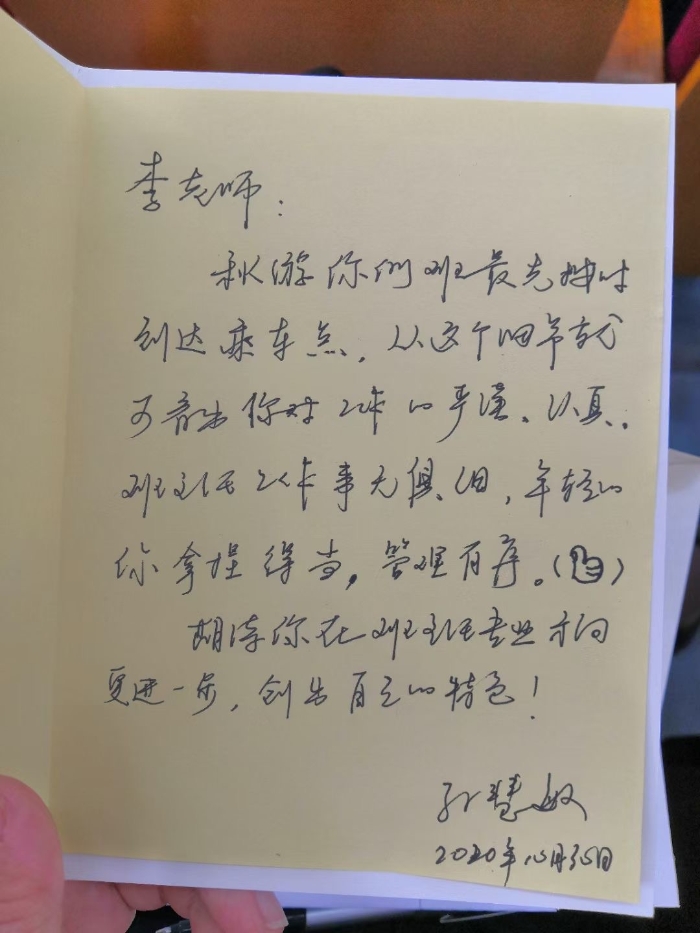 李老师：
秋游你们班最先抵时
到达乘车点，从这个细节就
可看出你对工作的严谨、认真。
班主任工作事无俱细，年轻的
你拿捏得当，管理有序。（）
期待你在班主任专业方向
更进一步，创出自己的特色！
孙慧敏
2020年10月30日